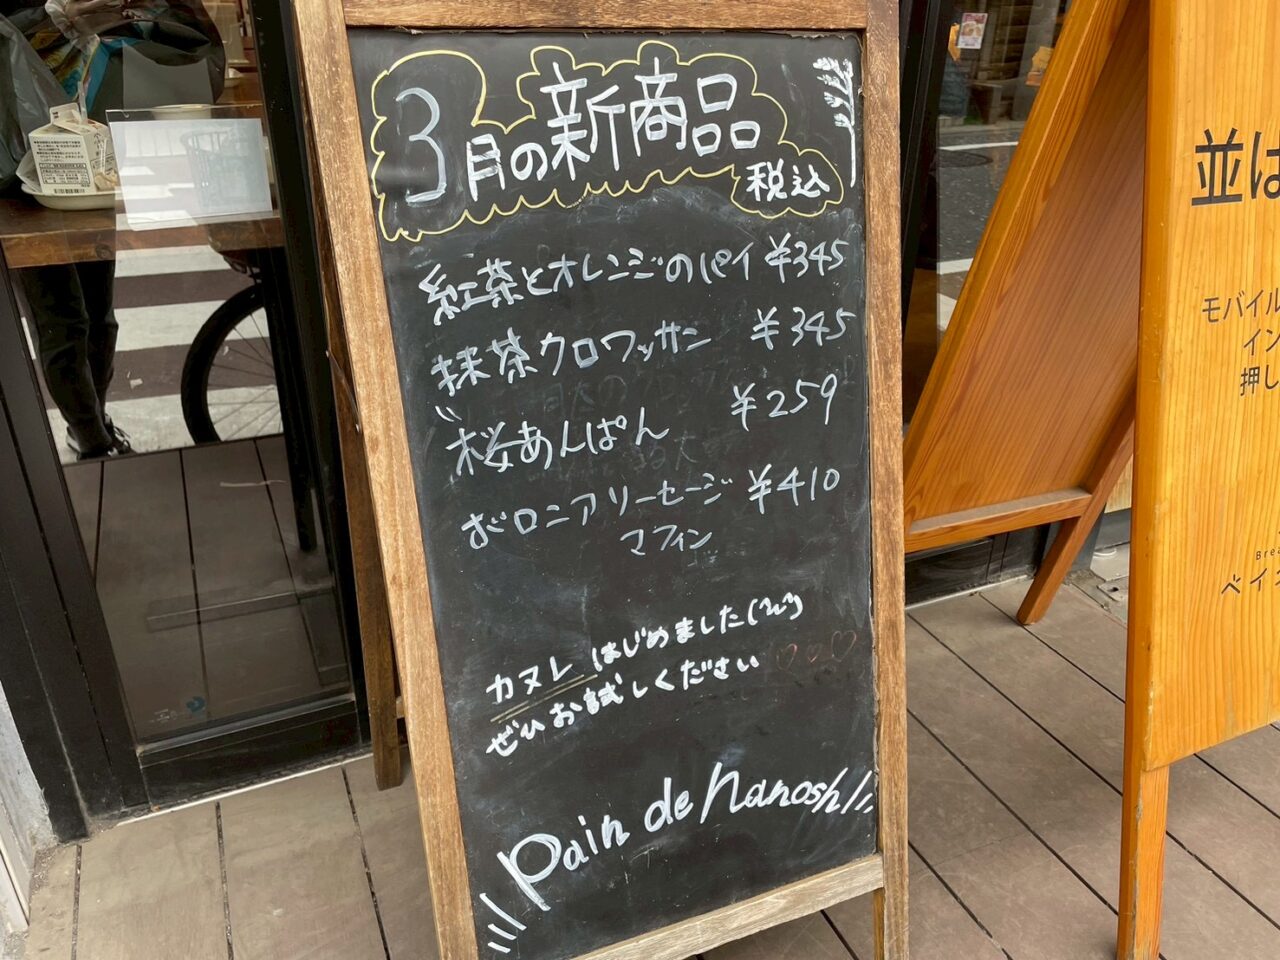 3月の新商品
税込
紅茶とオレンジのパイ ¥345
抹茶クロワッサン ¥345
桜あんぱん ¥259
ボロニアソーセージ ¥410
マフィン
カヌレはじめました
ぜひお試しください
Pain de hanosh
並
モバイル
イン
押し
Brea
ベイク